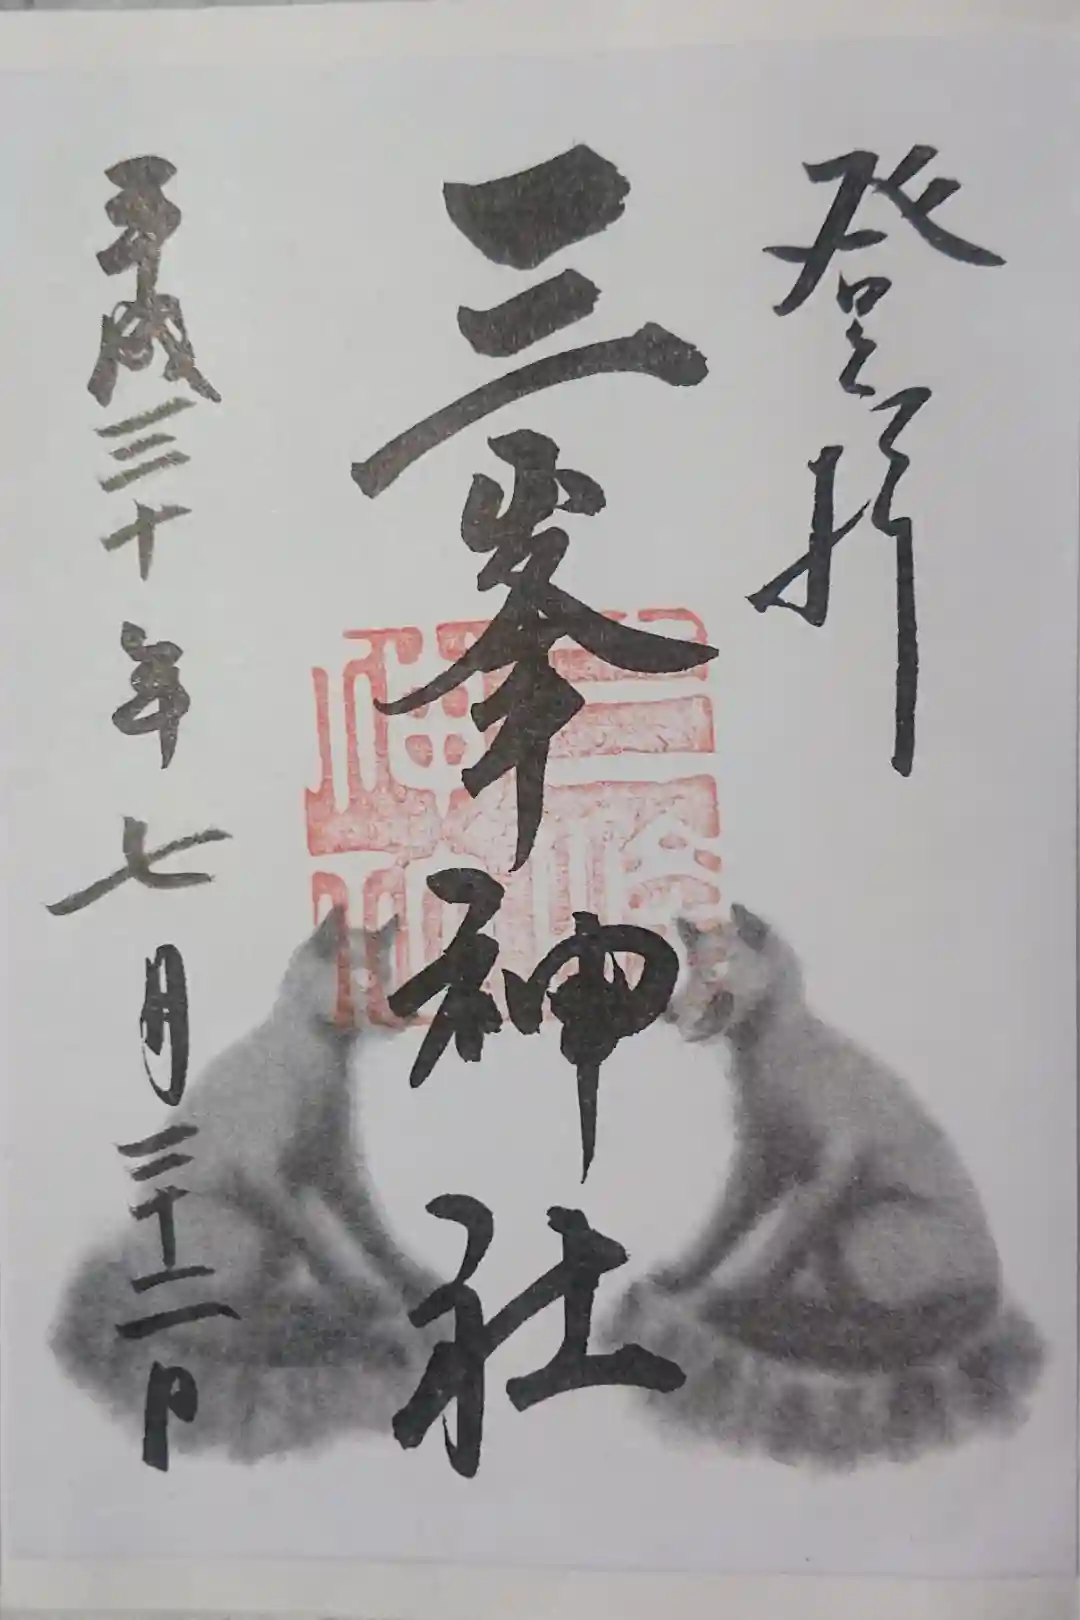 登拝
三峯神社
平成三十年七月二十二日